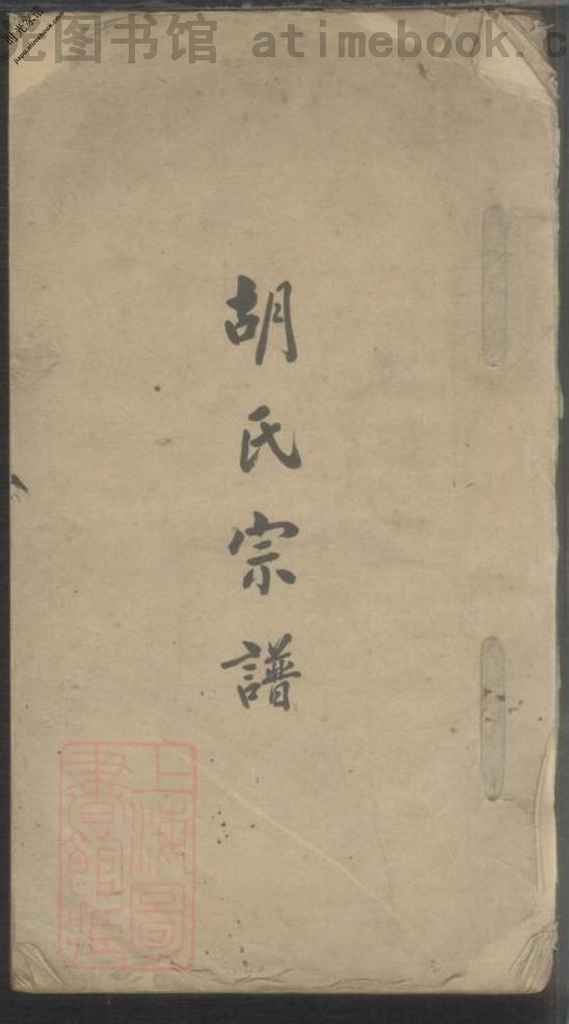 光图书馆 atimebook.c
胡氏宗譜
上海圖
書館藏